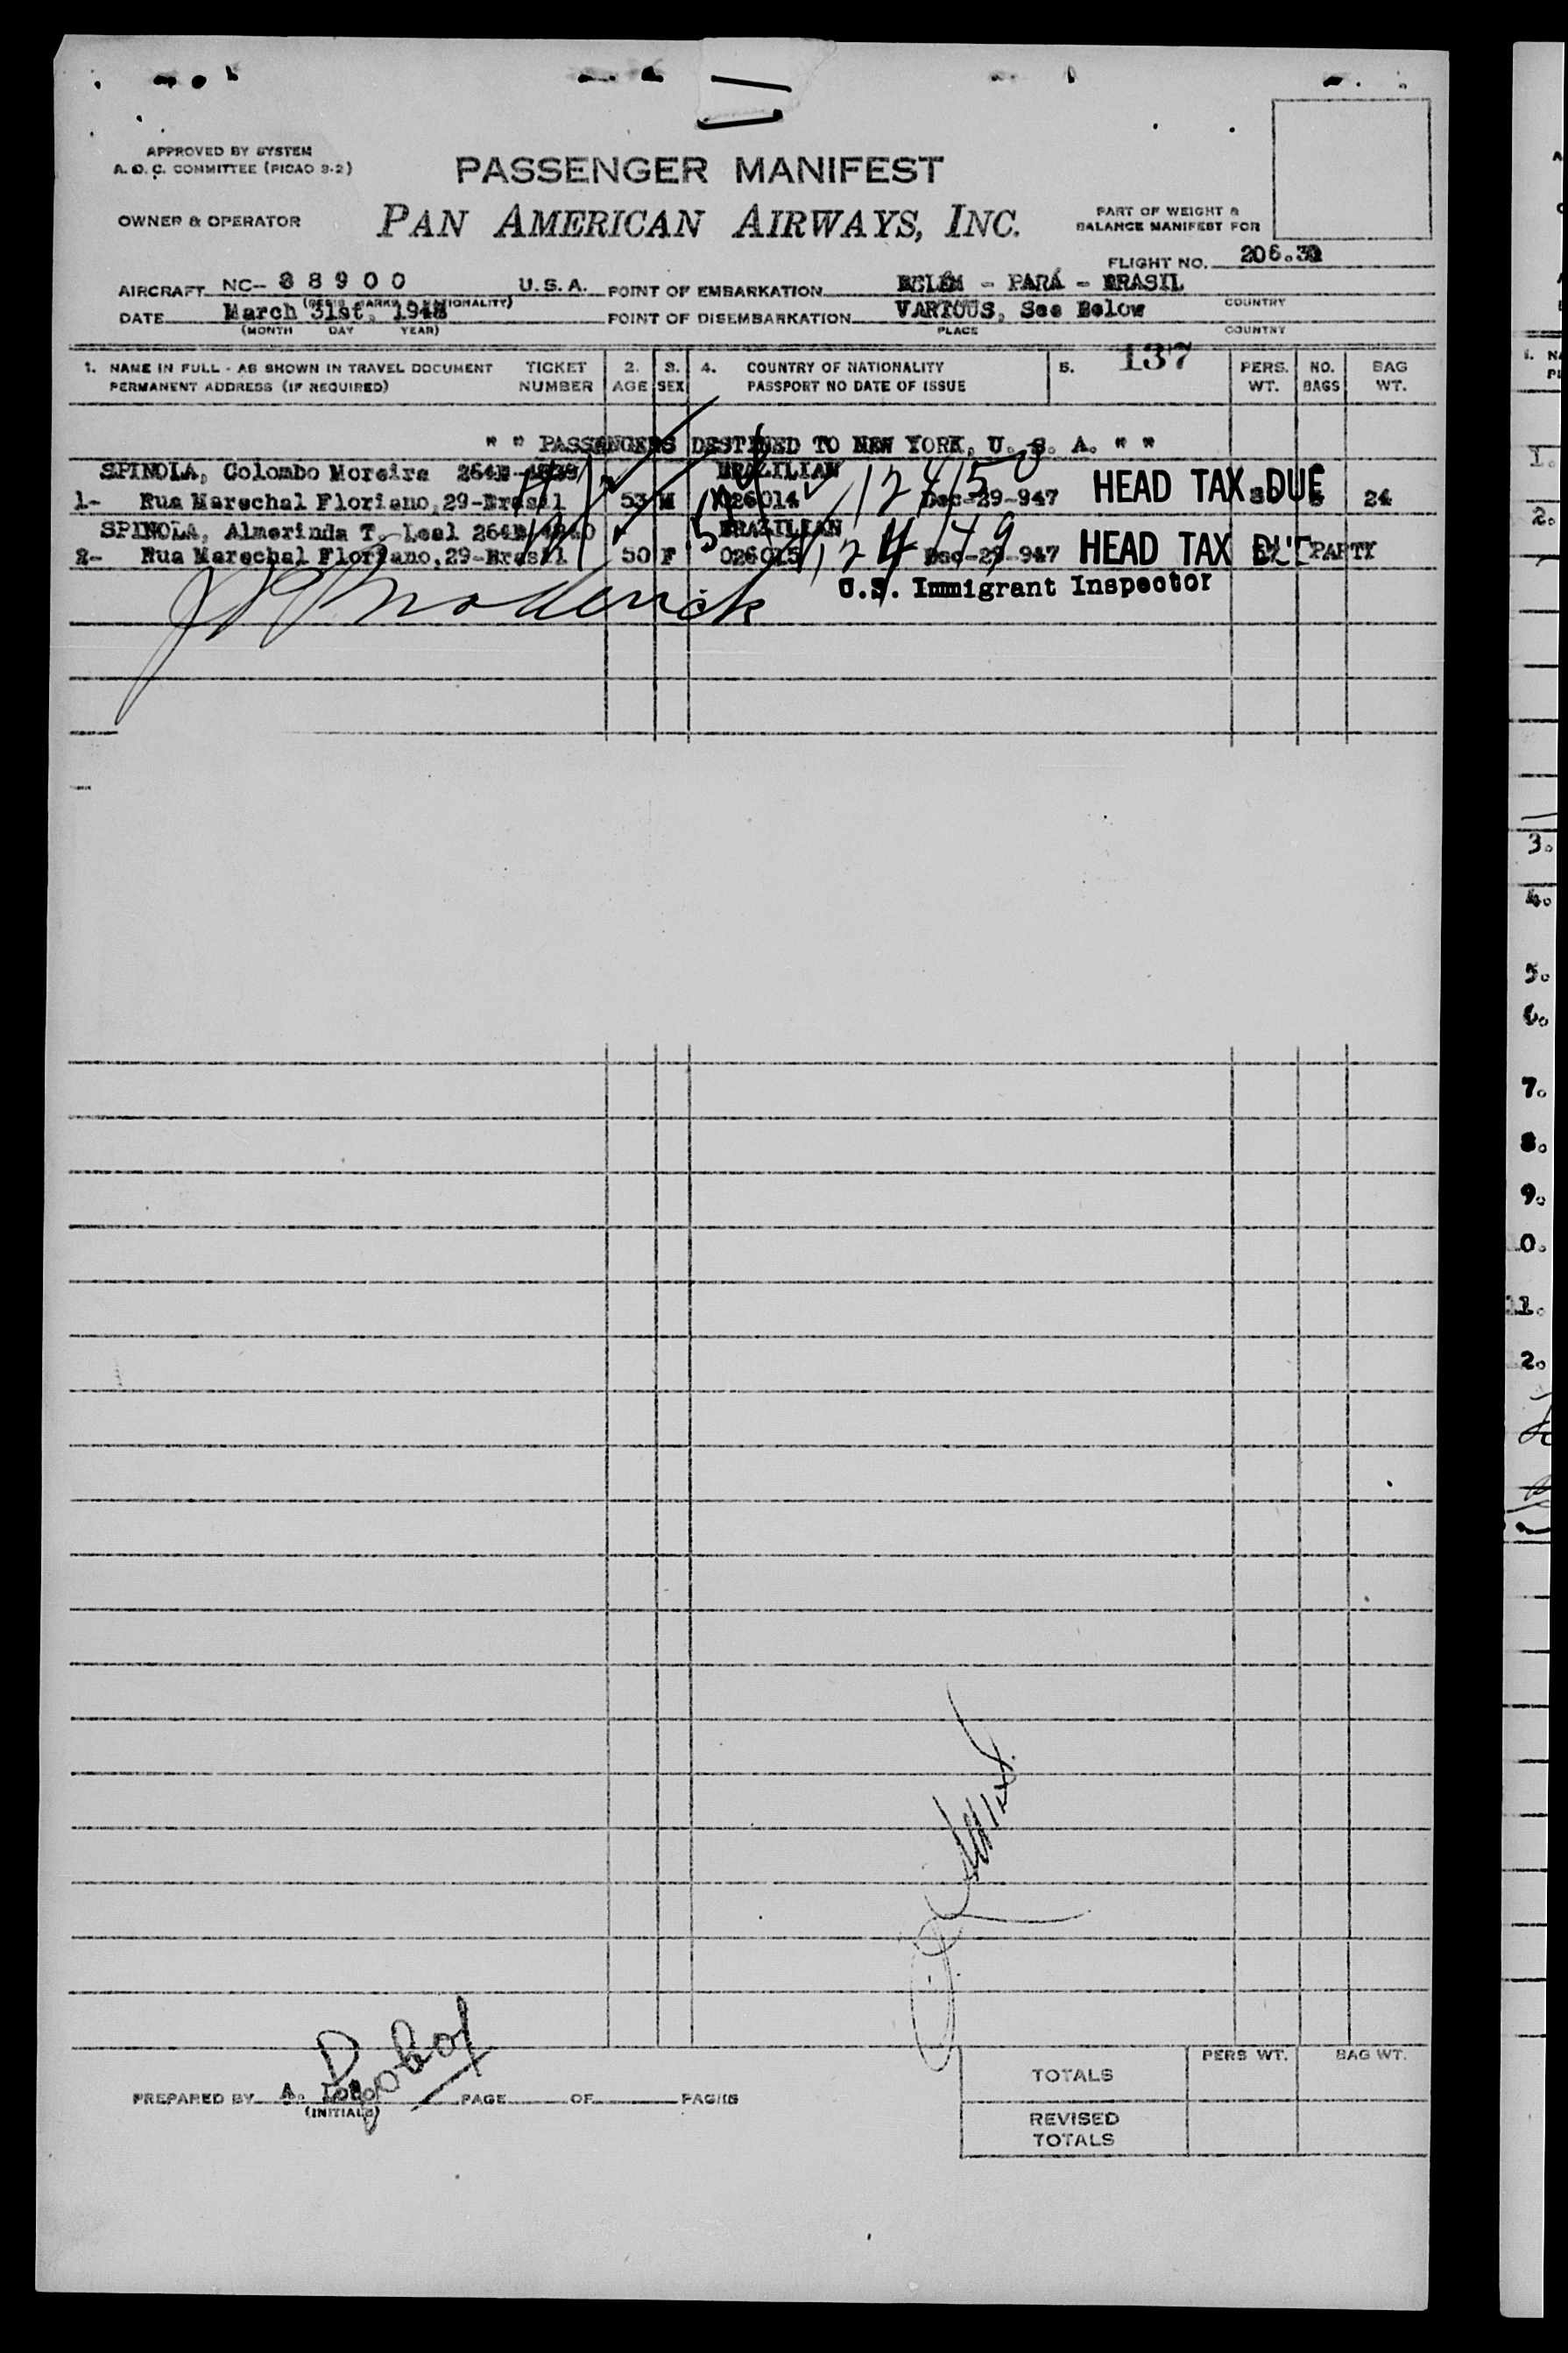 APPROVED BY SYSTEM
A. O. C. COMMITTEE (PICAO 9-2)
PASSENGER MANIFEST
OWNER & OPERATOR
PAN AMERICAN AIRWAYS, INC.
PART OF WEIGHT &
BALANCE MANIFEST FOR
FLIGHT NO. 206.
AIRCRAFT NC-- 88900 U.S.A. POINT OF EMBARKATION BELÉM - PARÁ - BRASIL
COUNTRY
DATE March 31st, 1948 POINT OF DISEMBARKATION VARIOUS, See Below
(MONTH DAY YEAR) PLACE COUNTRY
137
1. NAME IN FULL - AS SHOWN IN TRAVEL DOCUMENT TICKET 2. 3. 4. COUNTRY OF NATIONALITY 5. PERS. NO. BAG
PERMANENT ADDRESS (IF REQUIRED) NUMBER AGE SEX PASSPORT NO DATE OF ISSUE WT. BAGS WT.
" " PASSENGERS DESTINED TO NEW YORK, U. S. A. " "
SPINOLA, Colombo Moreira BRAZILIAN
1- Rua Marechal Floriano, 29-Brasil 53 M 026014 Dec-29-947 HEAD TAX DUE 24
SPINOLA, Almerinda T. Leal BRAZILIAN
2- Rua Marechal Floriano, 29-Brasil 50 F 026015 Dec-29-947 HEAD TAX DUE PARTY
U.S. Immigrant Inspector
PREPARED BY A. Lobo PAGE OF PAGES
(INITIALS)
PERS WT. BAG WT.
TOTALS
REVISED
TOTALS
1.
2.
3.
4.
5.
6.
7.
8.
9.
0.
1.
2.